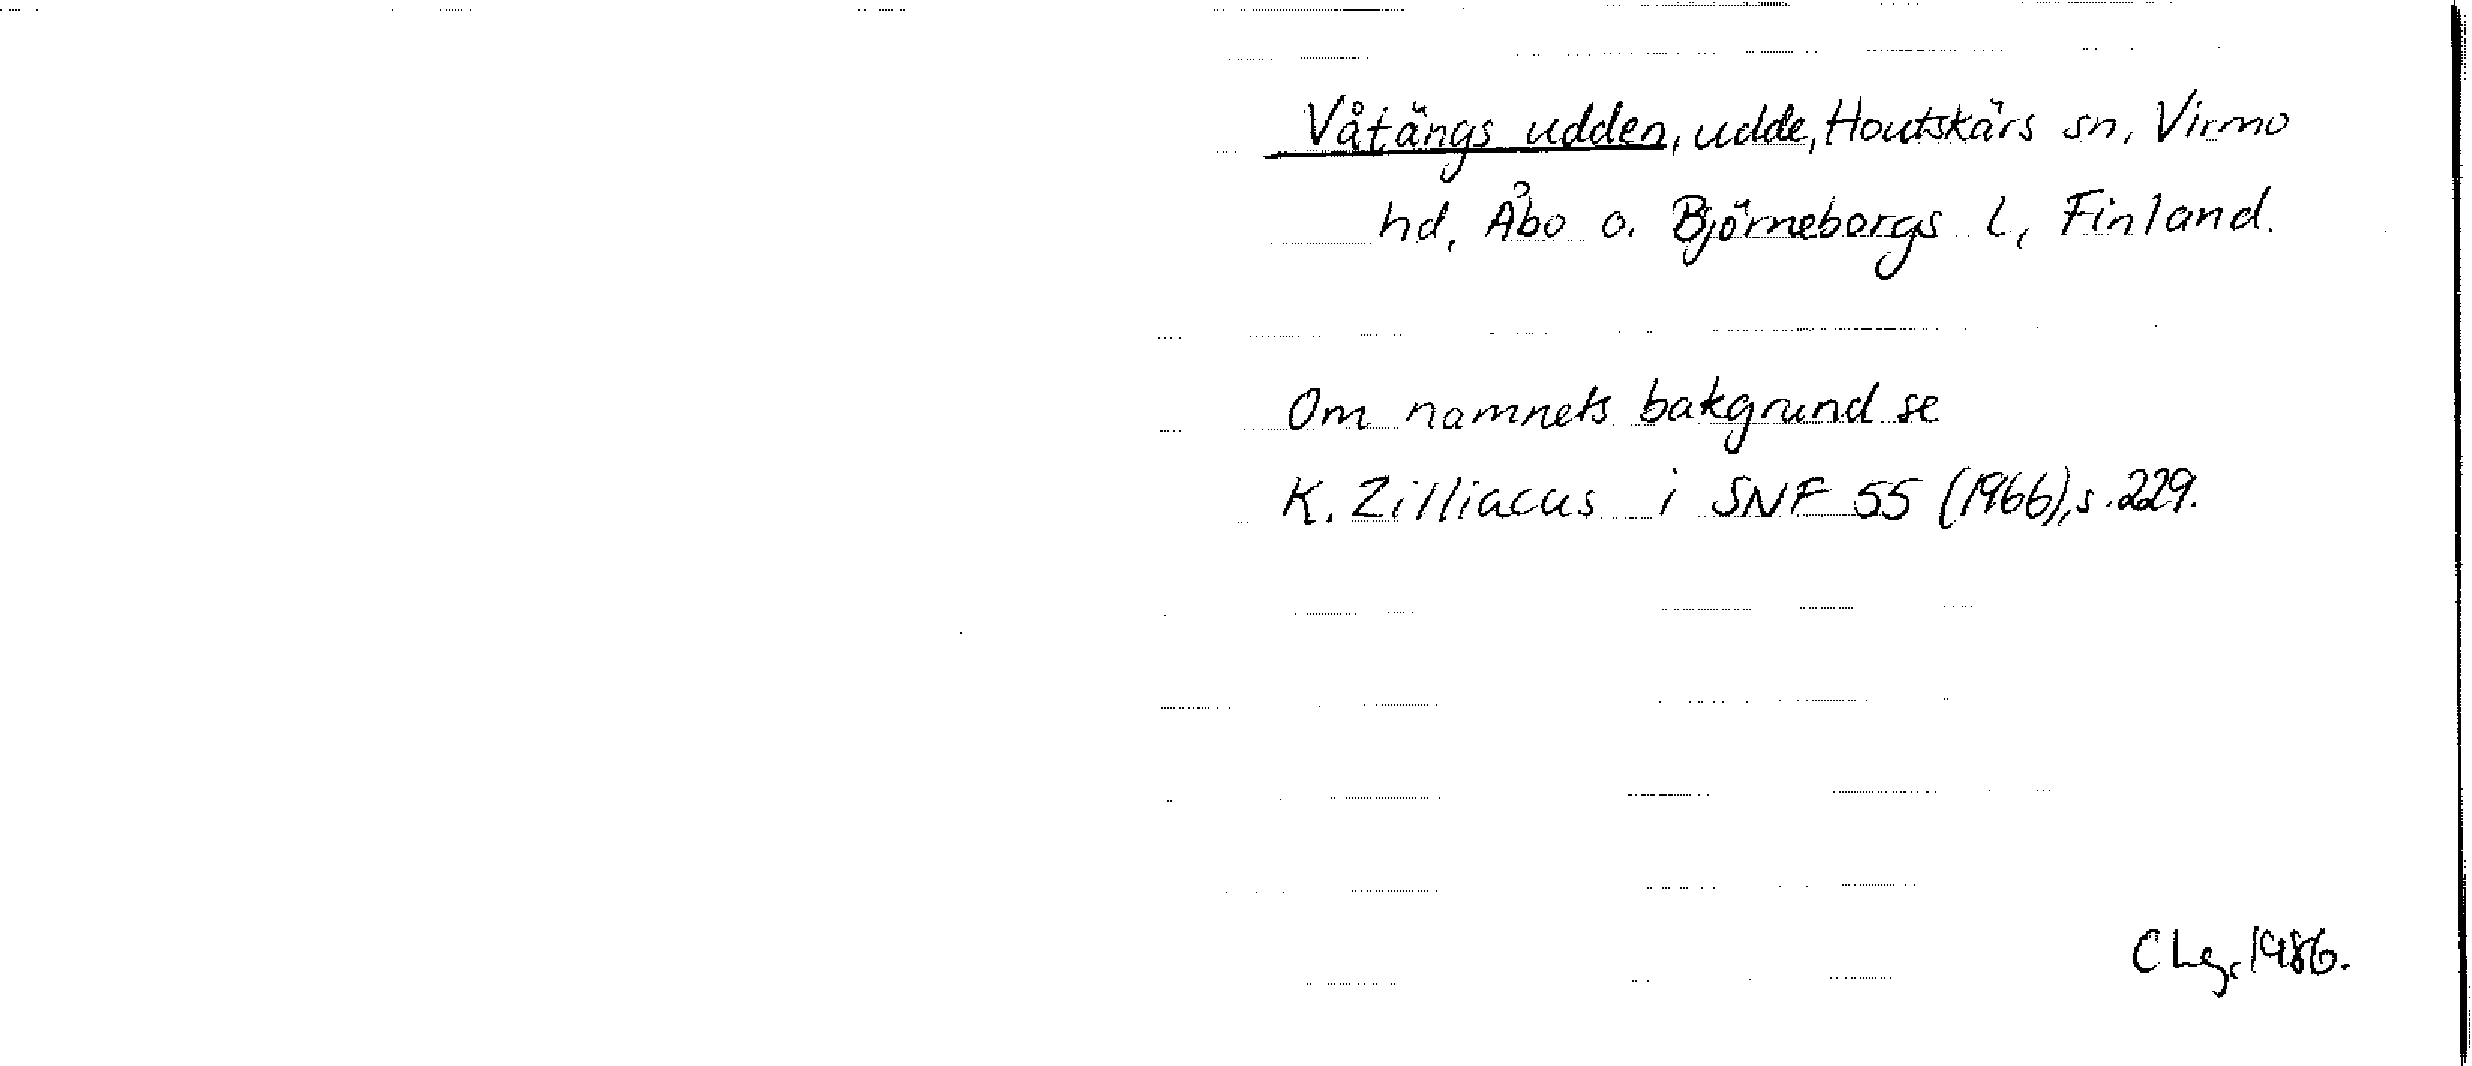 Våtängs udden, udde, Houtskärs sn, Virmo
hd, Åbo o. Björneborgs l, Finland.
Om namnets bakgrund se
K. Zilliacus i SNF 55 (1966), s. 229.
CLg, 1986.